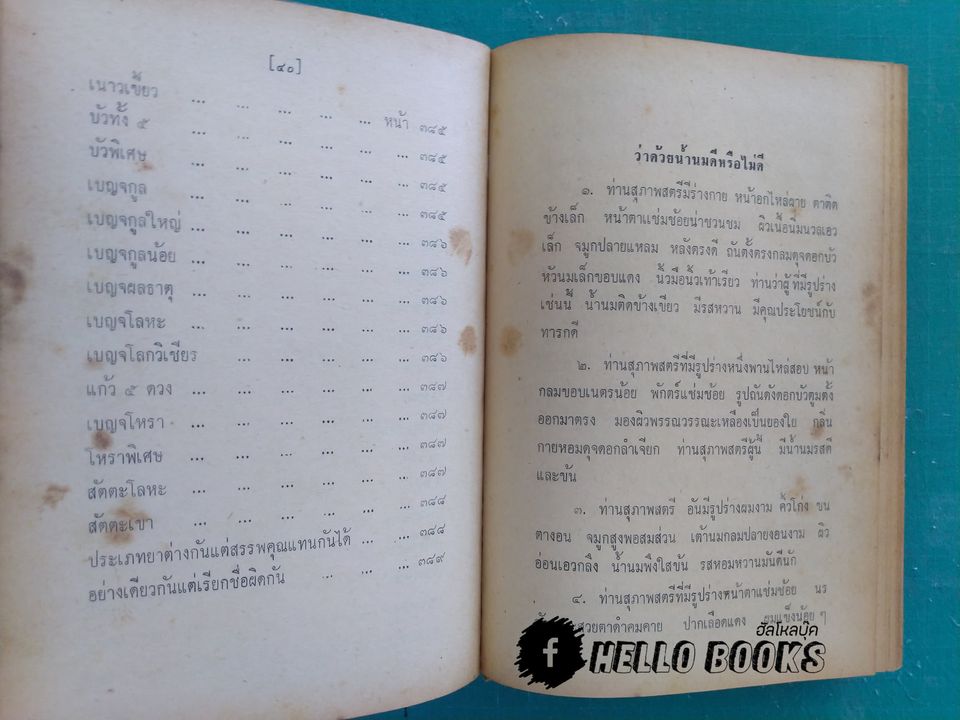 [๔๐]
เนาวเขียว ... ... ... ... ... หน้า ๓๘๕
บัวทั้ง ๕ ... ... ... ... ... ... ๓๘๕
บัวพิเศษ ... ... ... ... ... ... ๓๘๕
เบญจกูล ... ... ... ... ... ... ๓๘๕
เบญจกูลใหญ่ ... ... ... ... ... ... ๓๘๖
เบญจกูลน้อย ... ... ... ... ... ... ๓๘๖
เบญจผลธาตุ ... ... ... ... ... ... ๓๘๖
เบญจโลหะ ... ... ... ... ... ... ๓๘๖
เบญจโลกวิเชียร ... ... ... ... ... ๓๘๖
แก้ว ๕ ดวง ... ... ... ... ... ... ๓๘๗
เบญจโหรา ... ... ... ... ... ... ๓๘๗
โหราพิเศษ ... ... ... ... ... ... ๓๘๗
สัตตะโลหะ ... ... ... ... ... ... ๓๘๗
สัตตะเขา ... ... ... ... ... ... ๓๘๘
ประเภทยาต่างกันแต่สรรพคุณแทนกันได้ ... ... ๓๘๘
อย่างเดียวกันแต่เรียกชื่อผิดกัน ... ... ... ๓๘๙
ว่าด้วยน้ำนมดีหรือไม่ดี
๑. ท่านสุภาพสตรีมีร่างกาย หน้าอกไหล่ผาย ตาติด
ข้างเล็ก หน้าตาแช่มช้อยน่าชวนชม ผิวเนื้อนิ่มนวลเอว
เล็ก จมูกปลายแหลม หลังตรงดี ถันตั้งตรงกลมดุจดอกบัว
หัวนมเล็กขอบแดง นิ้วมือนิ้วเท้าเรียว ท่านว่าผู้ที่มีรูปร่าง
เช่นนี้ น้ำนมติดข้างเขียว มีรสหวาน มีคุณประโยชน์กับ
ทารกดี
๒. ท่านสุภาพสตรีที่มีรูปร่างหนึ่งพานไหล่สอบ หน้า
กลมขอบเนตรน้อย พักตร์แช่มช้อย รูปถันดังดอกบัวตูมตั้ง
ออกมาตรง มองผิวพรรณวรรณะเหลืองเป็นยองใย กลิ่น
กายหอมดุจดอกลำเจียก ท่านสุภาพสตรีผู้นี้ มีน้ำนมรสดี
และข้น
๓. ท่านสุภาพสตรี อันมีรูปร่างผมงาม คิ้วโก่ง ขน
ตางอน จมูกสูงพอสมส่วน เต้านมกลมปลายงอนงาม ผิว
อ่อนเอวกลิ้ง น้ำนมพึงใสข้น รสหอมหวานมันดีนัก
๔. ท่านสุภาพสตรีที่มีรูปร่างหน้าตาแช่มช้อย นร
สวยตาดำคมคาย ปากเลือดแดง ยมแข็งน้อย ๆ
ฮัลโหลบุ๊ค
f HELLO BOOKS